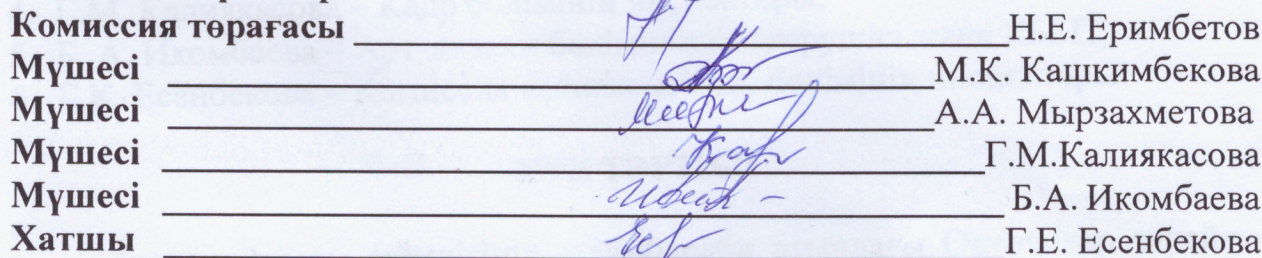 Комиссия төрағасы Н.Е. Еримбетов
Мүшесі М.К. Кашкимбекова
Мүшесі А.А. Мырзахметова
Мүшесі Г.М.Калиякасова
Мүшесі Б.А. Икомбаева
Хатшы Г.Е. Есенбекова